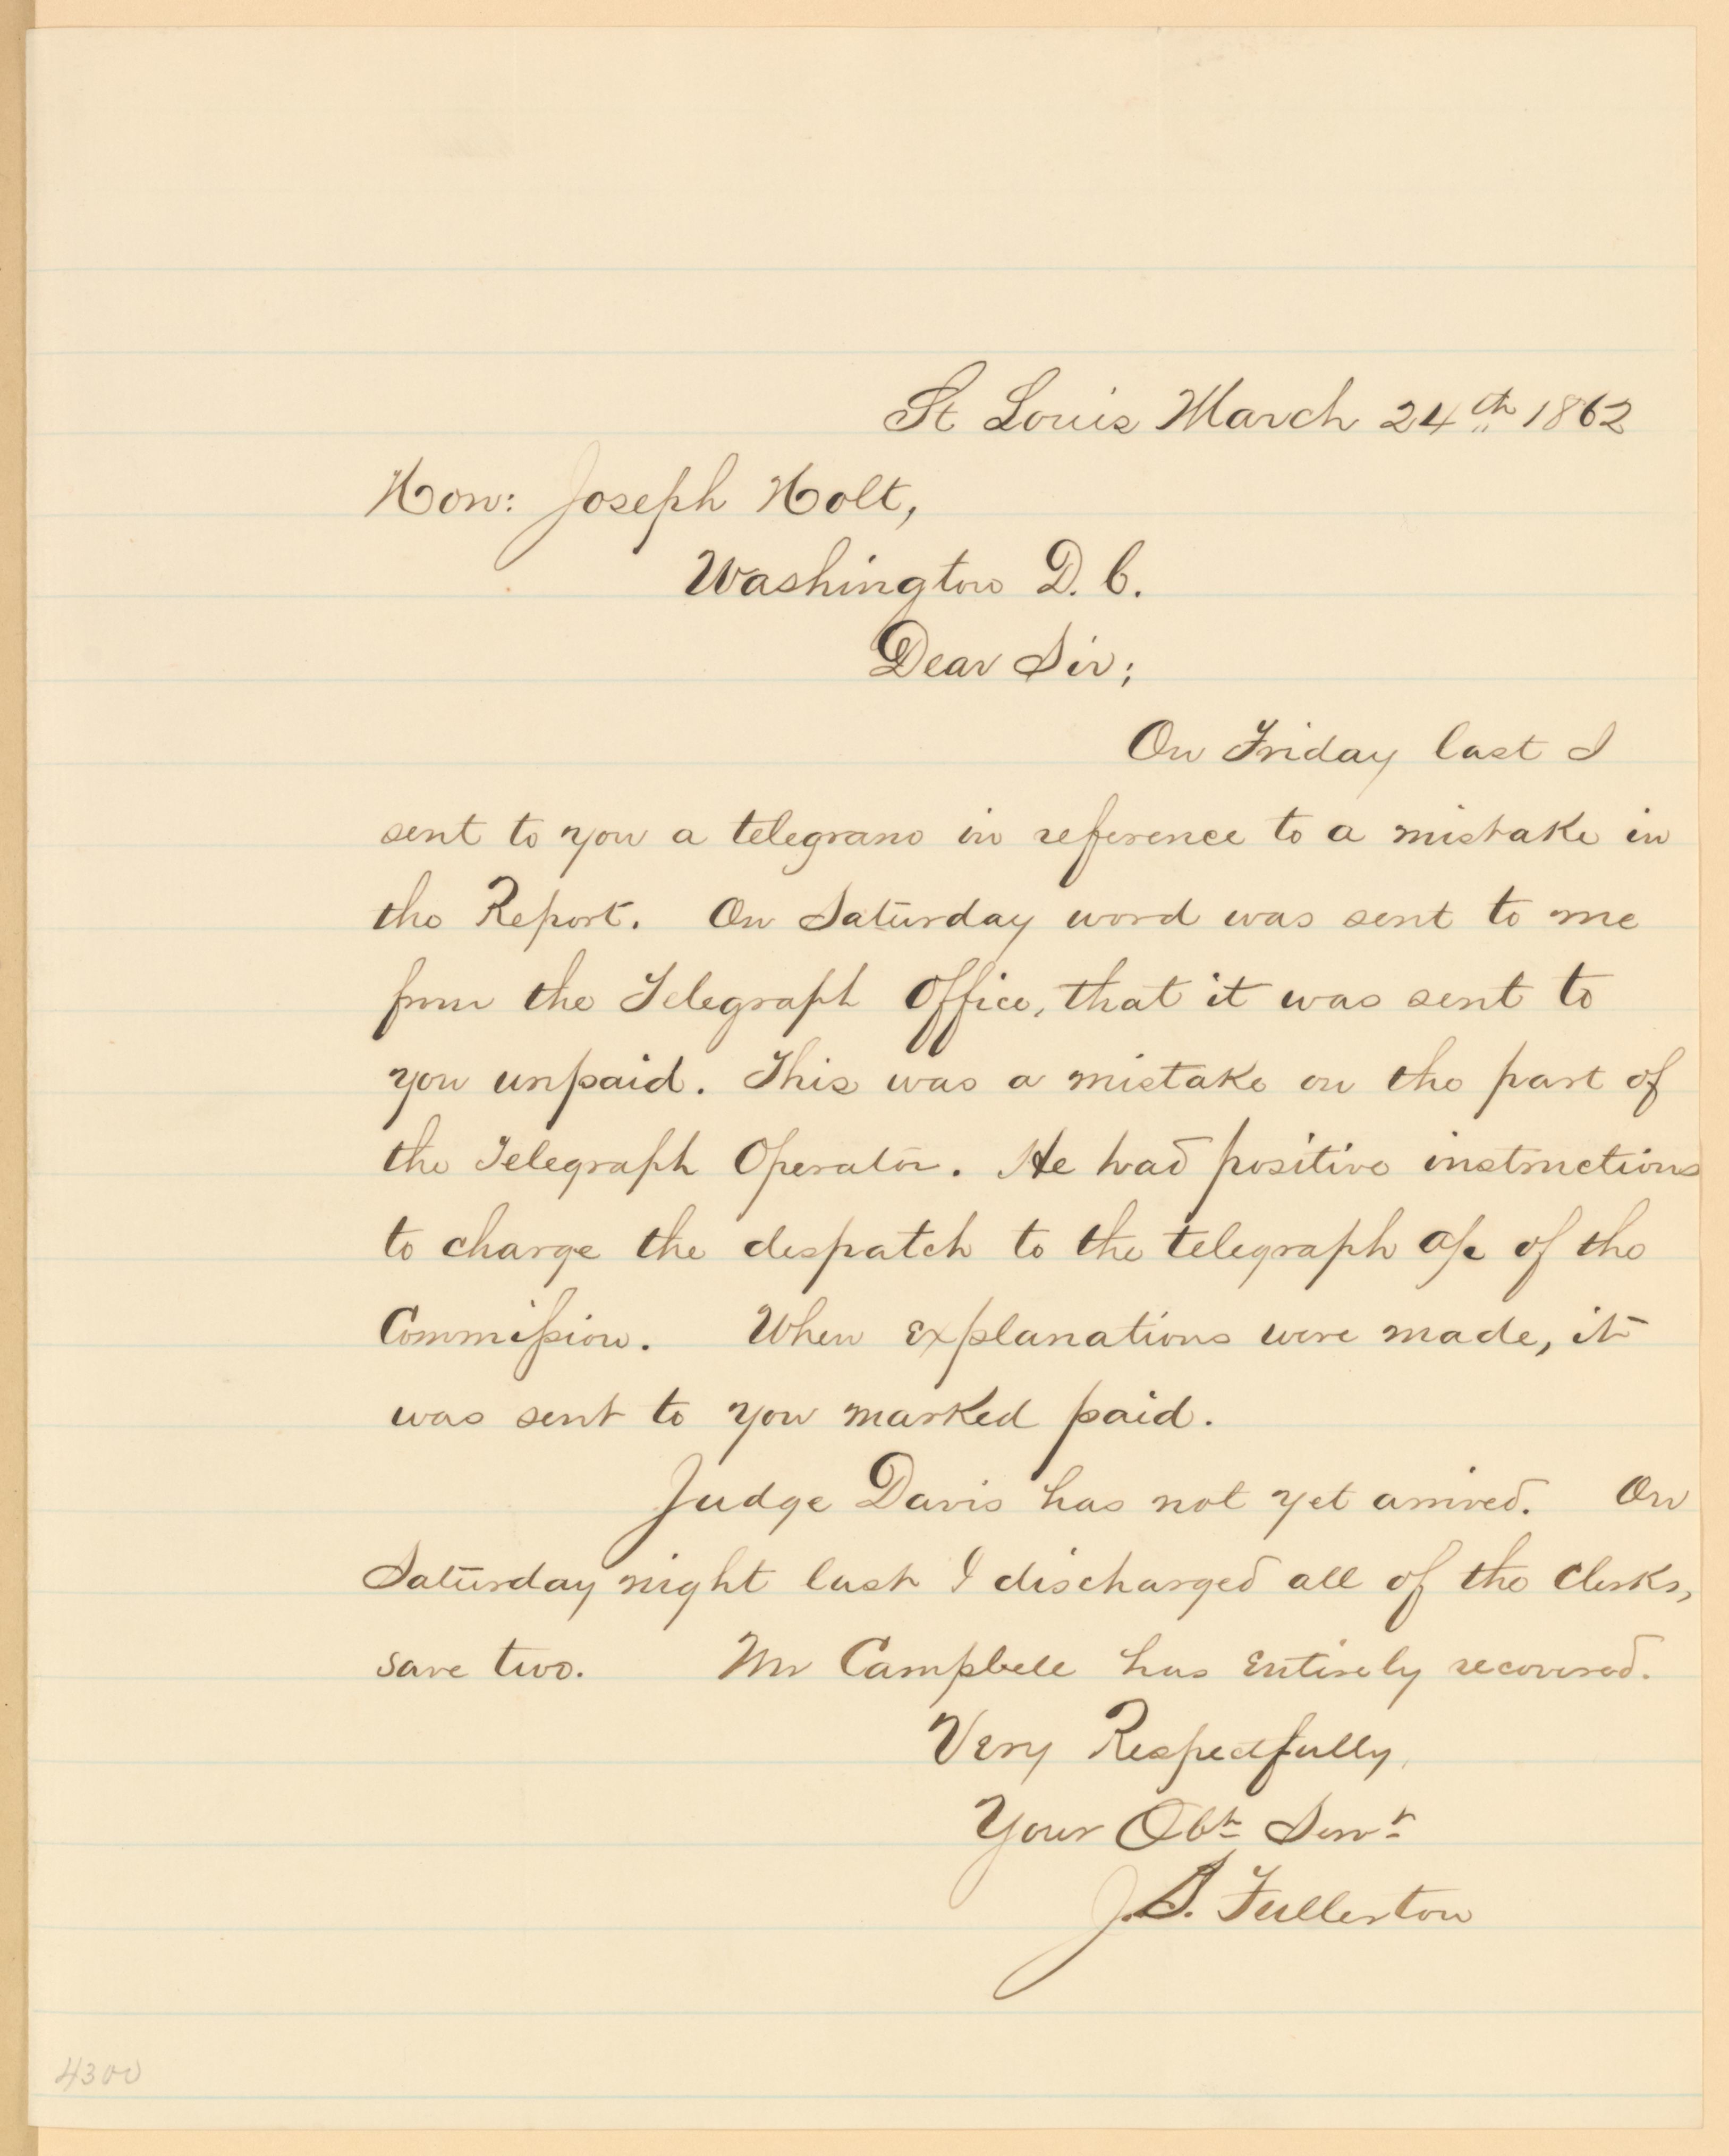 St Louis March 24th 1862
Hon: Joseph Holt,
Washington D. C.
Dear Sir;
On Friday last I
sent to you a telegram in reference to a mistake in
the Report. On Saturday word was sent to me
from the Telegraph Office, that it was sent to
you unpaid. This was a mistake on the part of
the Telegraph Operator. He had positive instructions
to charge the despatch to the telegraph a/c of the
Commission. When explanations were made, it
was sent to you marked paid.
Judge Davis has not yet arrived. On
Saturday night last I discharged all of the clerks,
save two. Mr Campbell has entirely recovered.
Very Respectfully,
Your Obt Servt
J. S. Fullerton
4300